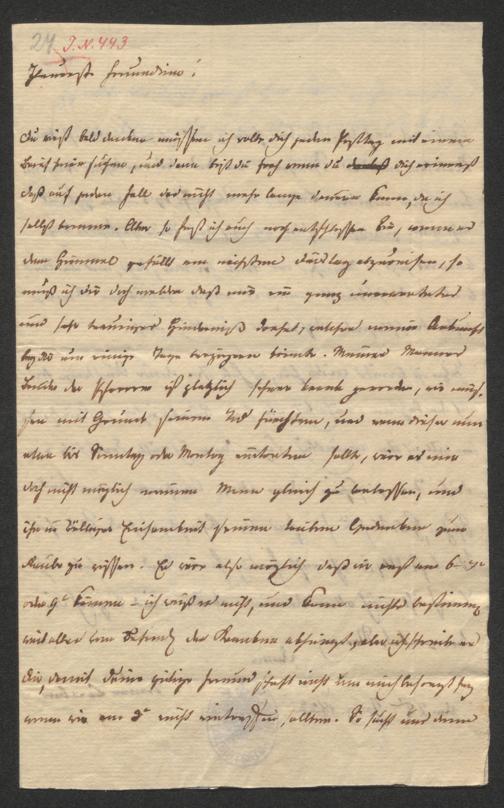 24 I.N. 443
Theuerste Freundinn!
Du wirst bald denken müssen ich wolle dich jeden Posttag mit einem
Brief heimsuchen, und dann bist du froh wenn du dich erinnerst
daß auf jeden Fall das nicht mehr lange dauern kann, da ich
selbst komme. Aber so fest ich auch noch entschlossen bin, wenn es
dem Himmel gefällt am nächsten Dienstag abzureisen, so
muß ich dir doch melden daß uns ein ganz unerwartetes
und sehr trauriges Hinderniß drohet, welches meine Ankunft
bey dir um einige Tage verzögern könnte. Meines Mannes
Bruder der Pfarrer ist plötzlich schwer krank geworden, wir müs-
sen mit Grund seinen Tod fürchten, und wenn dieser nun
etwa bis Sonntag oder Montag eintreten sollte, wäre es mir
doch nicht möglich meinen Mann gleich zu verlassen, und
ihn in völliger Einsamkeit seinen trüben Gedanken zum
Raube zu wissen. Es wäre also möglich daß wir erst am 6
oder 9 kämen – ich weiß es nicht, und kann nichts bestimmen
weil alles vom Befinden des Kranken abhängt, aber ich schreibe es
dir, damit deine gütige Freundschaft nicht um mich besorgt sey
wenn wir am 3 nicht eintreffen sollten. So sind uns denn